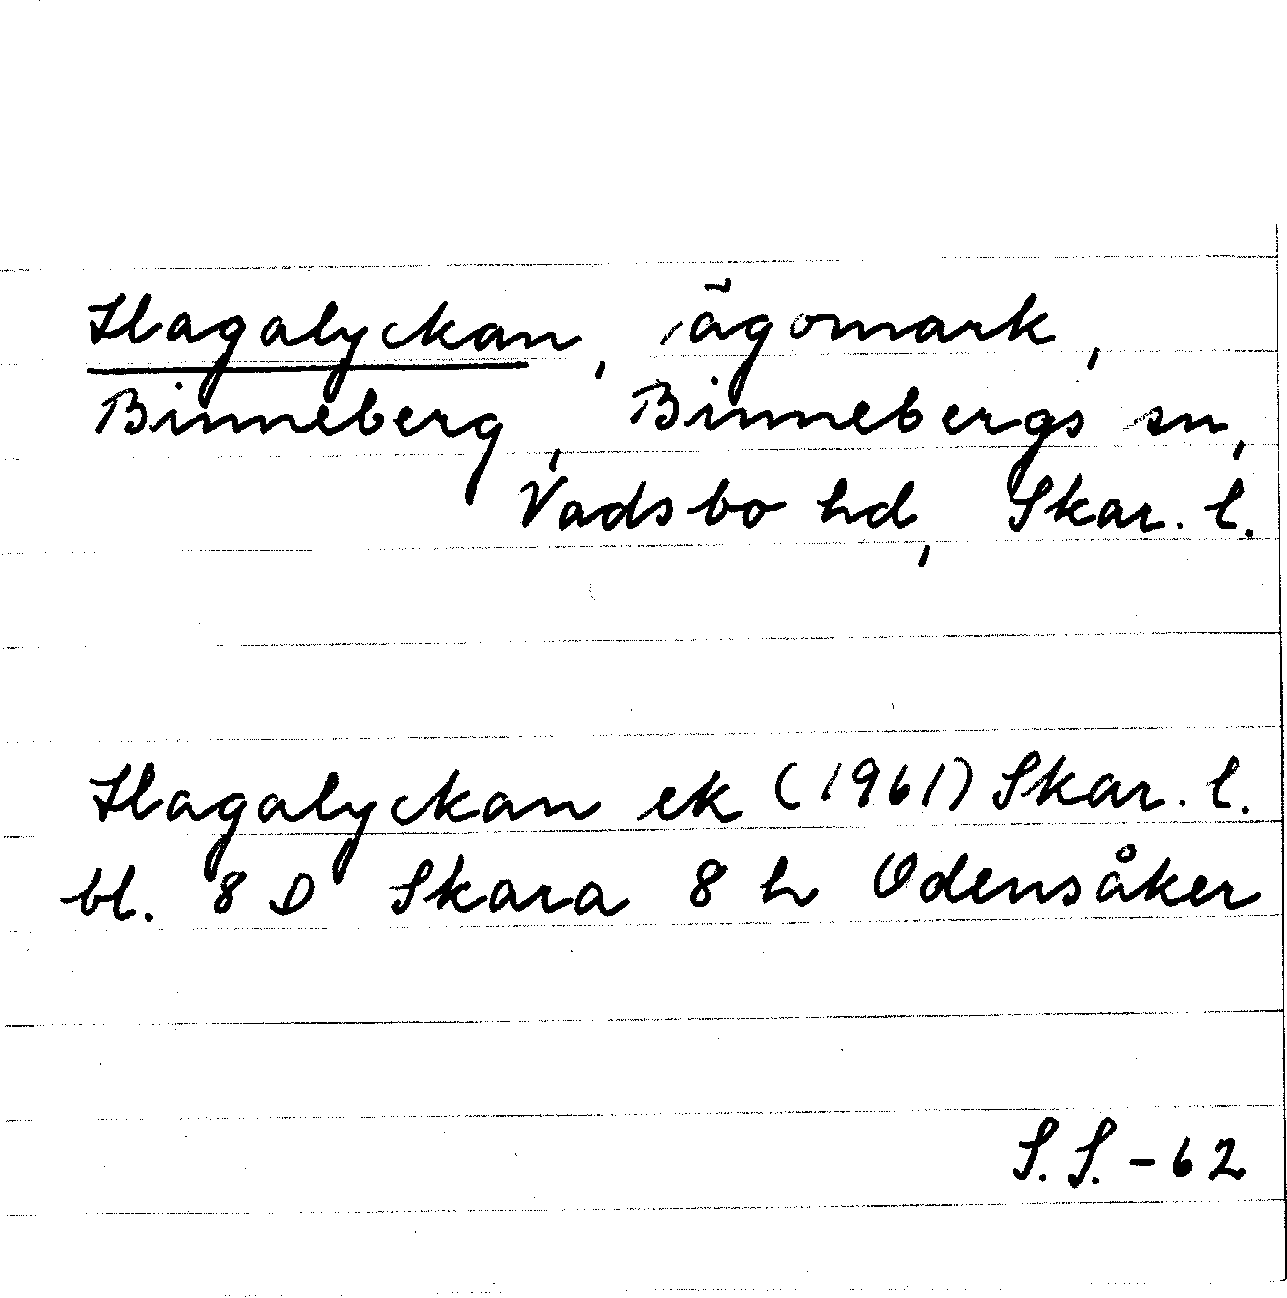 Hagalyckan, ägomark,
Binneberg, Binnebergs sn,
Vadsbo hd, Skar. l.
Hagalyckan ek (1961) Skar. l.
bl. 8 D Skara 8 h Odensåker
S.S. - 62